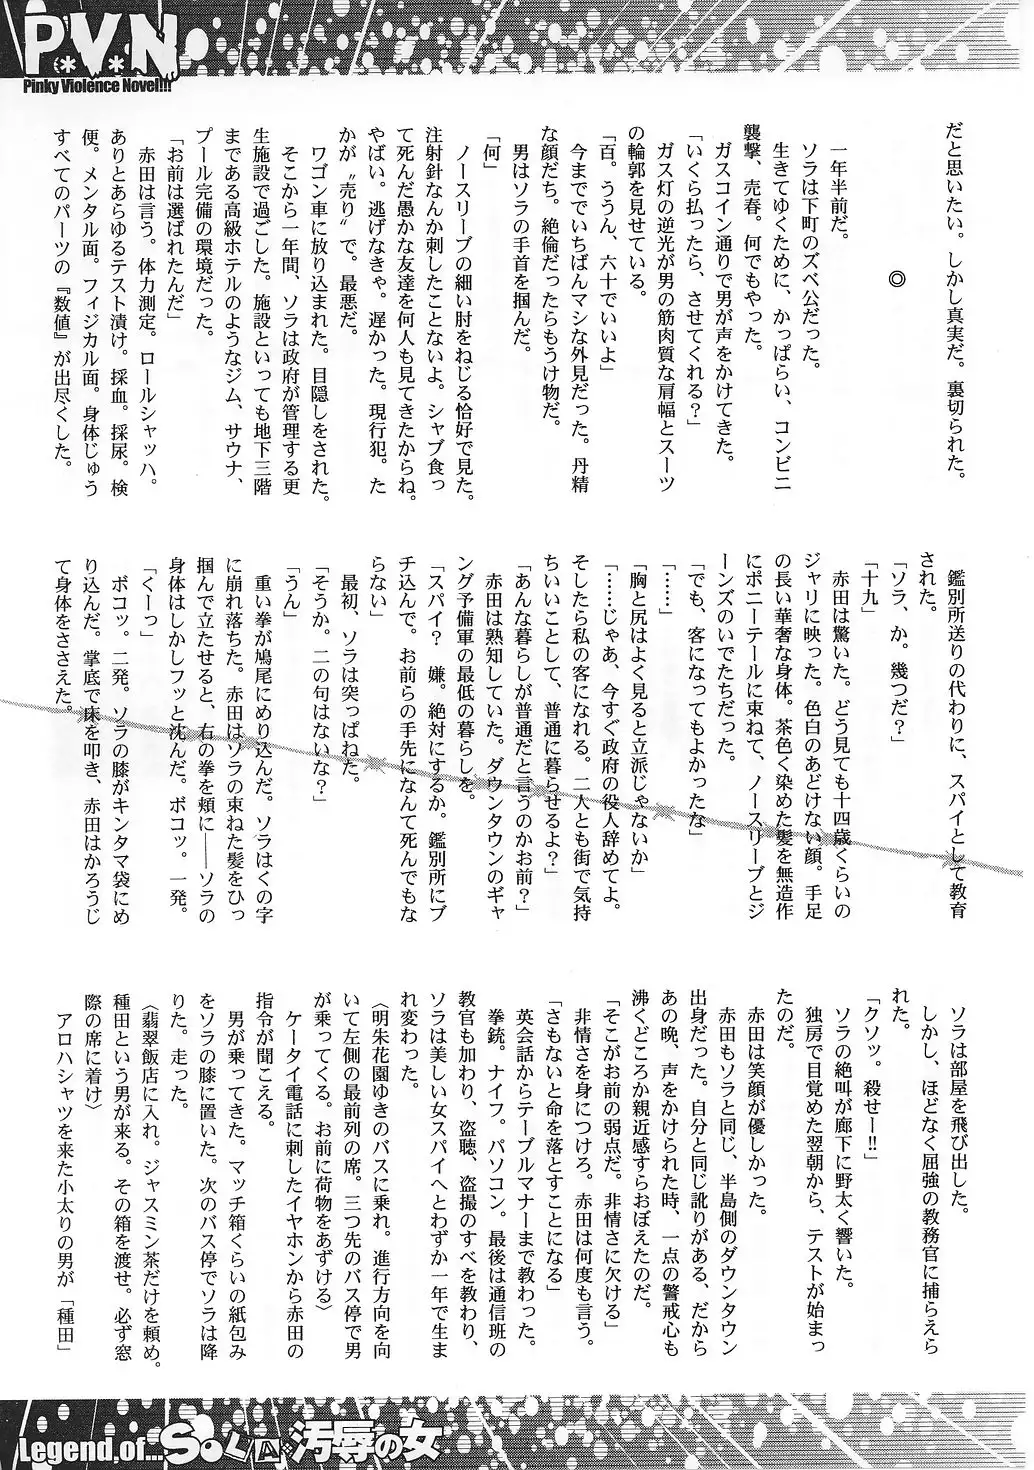 P.V.N
Pinky Violence Novel!!!
だと思いたい。しかし真実だ。裏切られた。
◎
一年半前だ。
ソラは下町のズベ公だった。
生きてゆくために、かっぱらい、コンビニ
襲撃、売春。何でもやった。
ガスコイン通りで男が声をかけてきた。
「いくら払ったら、させてくれる？」
ガス灯の逆光が男の筋肉質な肩幅とスーツ
の輪郭を見せている。
「百。ううん、六十でいいよ」
今まででいちばんマシな外見だった。丹精
な顔だち。絶倫だったらもうけ物だ。
男はソラの手首を掴んだ。
「何」
ノースリーブの細い肘をねじる恰好で見た。
注射針なんか刺したことないよ。シャブ食っ
て死んだ愚かな友達を何人も見てきたからね。
やばい。逃げなきゃ。遅かった。現行犯。た
かが〝売り〟で。最悪だ。
ワゴン車に放り込まれた。目隠しをされた。
そこから一年間、ソラは政府が管理する更
生施設で過ごした。施設といっても地下三階
まである高級ホテルのようなジム、サウナ、
プール完備の環境だった。
「お前は選ばれたんだ」
赤田は言う。体力測定。ロールシャッハ。
ありとあらゆるテスト漬け。採血。採尿。検
便。メンタル面。フィジカル面。身体じゅう
すべてのパーツの『数値』が出尽くした。
鑑別所送りの代わりに、スパイとして教育
された。
「ソラ、か。幾つだ？」
「十九」
赤田は驚いた。どう見ても十四歳くらいの
ジャリに映った。色白のあどけない顔。手足
の長い華奢な身体。茶色く染めた髪を無造作
にポニーテールに束ねて、ノースリーブとジ
ーンズのいでたちだった。
「……」
「でも、客になってもよかったな」
「胸と尻はよく見ると立派じゃないか」
「……じゃあ、今すぐ政府の役人辞めてよ。
そしたら私の客になれる。二人とも街で気持
ちいいことして、普通に暮らせるよ？」
「あんな暮らしが普通だと言うのかお前？」
赤田は熟知していた。ダウンタウンのギャ
ング予備軍の最低の暮らしを。
「スパイ？　嫌。絶対にするか。鑑別所にブ
チ込んで。お前らの手先になんて死んでもな
らない」
最初、ソラは突っぱねた。
「そうか。二の句はないな？」
「うん」
重い拳が鳩尾にめり込んだ。ソラはくの字
に崩れ落ちた。赤田はソラの束ねた髪をひっ
掴んで立たせると、右の拳を頬に――ソラの
身体はしかしフッと沈んだ。ボコッ。一発。
「くーっ」
ボコッ。二発。ソラの膝がキンタマ袋にめ
り込んだ。掌底で床を叩き、赤田はかろうじ
て身体をささえた。
ソラは部屋を飛び出した。
しかし、ほどなく屈強の教務官に捕らえら
れた。
「クソッ。殺せー!!」
ソラの絶叫が廊下に野太く響いた。
独房で目覚めた翌朝から、テストが始まっ
たのだ。
赤田は笑顔が優しかった。
赤田もソラと同じ、半島側のダウンタウン
出身だった。自分と同じ訛りがある、だから
あの晩、声をかけられた時、一点の警戒心も
沸くどころか親近感すらおぼえたのだ。
「そこがお前の弱点だ。非情さに欠ける」
非情さを身につけろ。赤田は何度も言う。
「さもないと命を落とすことになる」
英会話からテーブルマナーまで教わった。
拳銃。ナイフ。パソコン。最後は通信班の
教官も加わり、盗聴、盗撮のすべを教わり、
ソラは美しい女スパイへとわずか一年で生ま
れ変わった。
〈明朱花園ゆきのバスに乗れ。進行方向を向
いて左側の最前列の席。三つ先のバス停で男
が乗ってくる。お前に荷物をあずける〉
ケータイ電話に刺したイヤホンから赤田の
指令が聞こえる。
男が乗ってきた。マッチ箱くらいの紙包み
をソラの膝に置いた。次のバス停でソラは降
りた。走った。
〈翡翠飯店に入れ。ジャスミン茶だけを頼め。
種田という男が来る。その箱を渡せ。必ず窓
際の席に着け〉
アロハシャツを来た小太りの男が「種田」
Legend.of... SOLA 汚辱の女